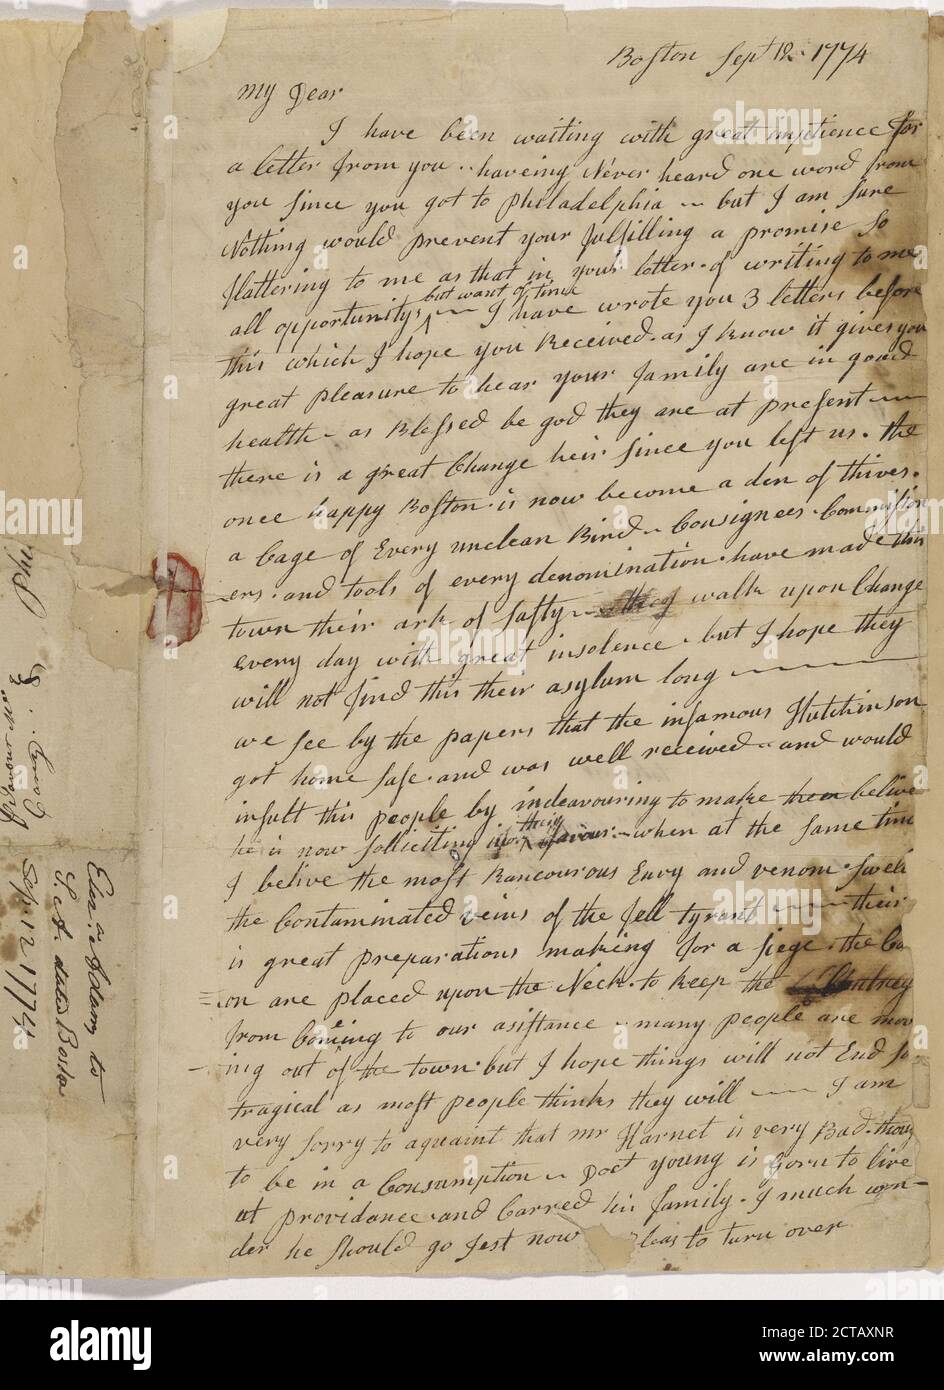 Boston Sept 12. 1774
My Dear
I have been waiting with great imptience for
a letter from you .. haveing Never heard one word from
you since you got to Philadelphia – but I am sure
Nothing would prevent your fulfilling a promise so
flattering to me as that in your letter. of writing to me
all opportunitys but want of time – I have wrote you 3 letters before
this which I hope you Received. as I know it gives you
great pleasure to hear your family are in good
health – as Blessed be god they are at present ––
there is a great Change heir since you left us. the
once happy Boston is now become a den of thives.
a Cage of Every unclean Bird – Consignees. Commission
ers. and tools of every denomination. have made this
town their ark of safty – they walk upon Change
every day with great insolence. but I hope they
will not find this their asylum long –––
we see by the papers that the infamous Hutchinson
got home safe. and was well received – and would
insult this people by indeavouring to make them belive
he is now sollicitting in their favour. – when at the same time
I belive the most Rancourous Envy and venom swell
the Contaminated veins of the fell tyrant ––– their
is great preparations making for a siege. the Ca
on are placed upon the Neck. to keep the
from Coming to our asistance – many people are mov
ing out of the town. but I hope things will not End so
tragical as most people thinks they will –– I am
very sorry to aquaint that Mr Harnet is very Bad. thou
to be in a Consumption – Doct young is gorn to live
at providance. and Carred his family. I much won-
der he should go Jest now leas to turn over
Eliz.a Adams to
S. A. dated Boston
Sep. 12 1774
Phi
alamy stock photo
Image ID: 2CTAXNR
www.alamy.com